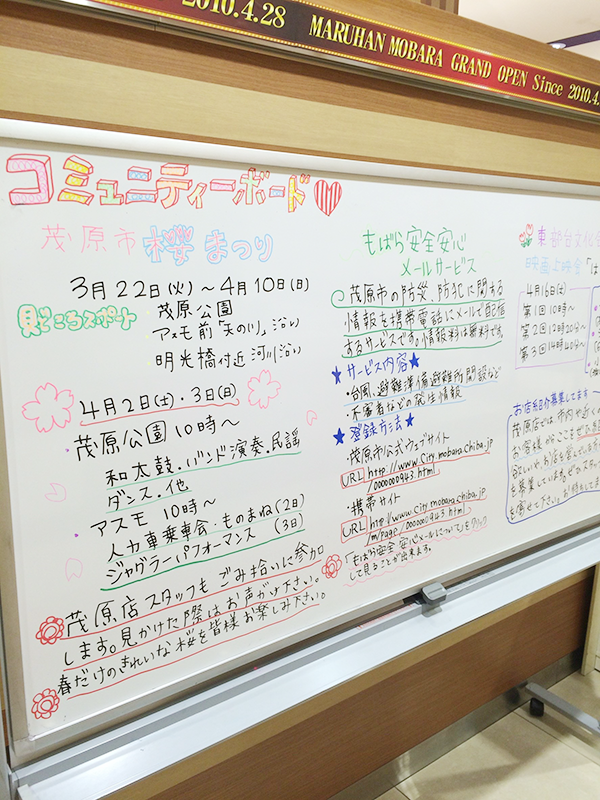 2010.4.28 MARUHAN MOBARA GRAND OPEN Since 2010.4.
コミュニティーボード
茂原市桜まつり
3月22日(火)~4月10日(日)
見どころスポット
茂原公園
アスモ前「天の川」沿い
明光橋付近河川沿い
4月2日(土)・3日(日)
茂原公園10時~
和太鼓・バンド演奏・民謡
ダンス・他
アスモ 10時~
人力車乗車会・ものまね(2日)
ジャグラーパフォーマンス (3日)
茂原店スタッフも ごみ拾いに参加
します。見かけた際はお声がけ下さい。
春だけのきれいな桜を皆様お楽しみ下さい。
もばら安全安心
メールサービス
茂原市の防災、防犯に関する
情報を携帯電話にメールで配信
するサービスです。情報料は無料です。
★サービス内容★
・台風、避難準備避難所開設など
・不審者などの発生情報
★登録方法★
・茂原市公式ウェブサイト
URL http://www.city.mobara.chiba.jp
/0000000943.html
・携帯サイト
URL http://www.city.mobara.chiba.jp
/m/page/0000000943.html
「もばら安全安心メールについて」をクリック
して見ることが出来ます。
東部台文化会
映画上映会「は
4月16日(土)
第1回10時~
第2回12時20分~
第3回14時40分~
お店紹介募集してます
茂原店では、市内や近くの
お客様から、ここをぜひ
欲しいや、お店を営んでいる方
を募集しています。ぜひスタッフ
を寄せて下さい。お待ちしてま